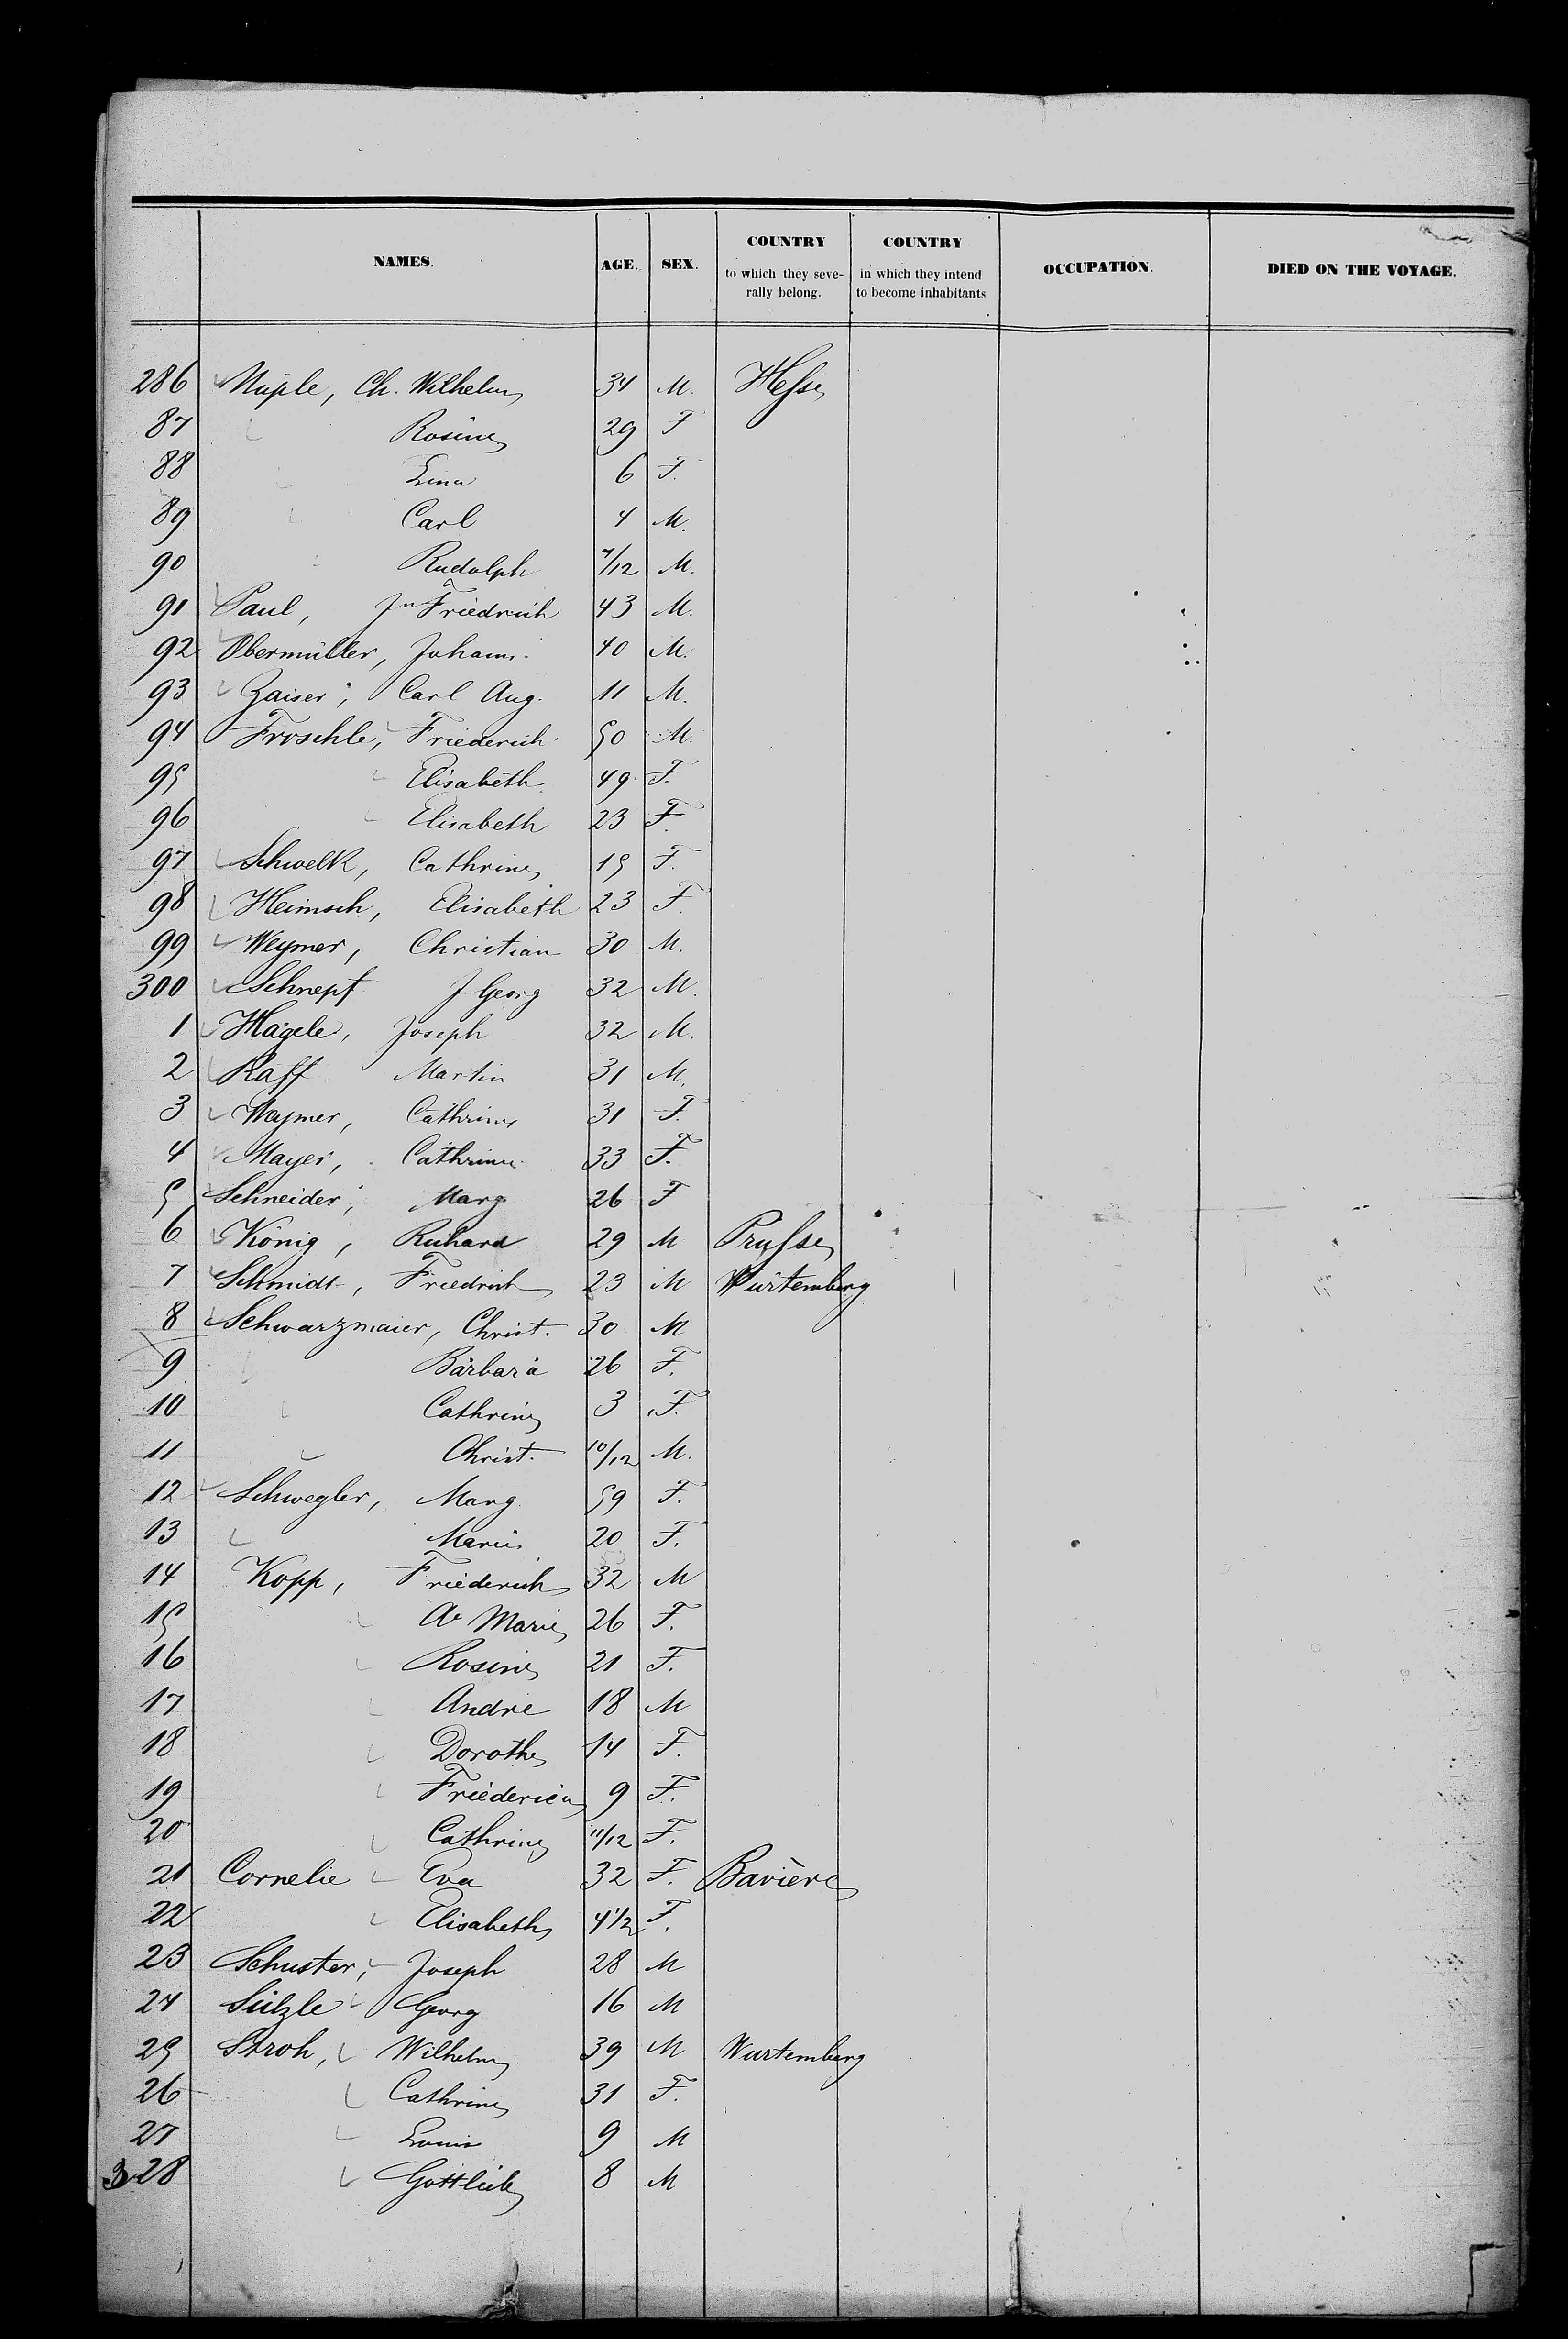 NAMES. AGE. SEX. COUNTRY to which they seve-rally belong. COUNTRY in which they intend to become inhabitants OCCUPATION. DIED ON THE VOYAGE.
286 Ch. Wilhelm 34 M. Hesse
87 Rosine 29 F
88 Lina 6 F.
89 Carl 4 M.
90 Rudolph /12 M.
91 Paul, Jn Friedrich 43 M.
92 Obermüller, Johann. 40 M.
93 Zaiser, Carl Aug. 11 M.
94 Froschle, Friederich 50 M.
95 Elisabeth 49 F.
96 Elisabeth 23 F.
97 Schwelk, Cathrine 15 F.
98 Heimsch, Elisabeth 23 F.
99 Weymer, Christian 30 M.
300 Schnepf J Georg 32 M.
1 Hägele, Joseph 32 M.
2 Raff Martin 31 M.
3 Waymer, Cathrine 31 F.
4 Mayer, Cathrine 33 F.
5 Schneider, Marg 26 F
6 König, Richard 29 M Prusse
7 Schmidt, Friedrich 23 M Würtemberg
8 Schwarzmaier, Christ. 30 M
9 Barbara 26 F.
10 Cathrine 3 F.
11 Christ. 10/12 M.
12 Schwegler, Marg. 59 F.
13 Marie 20 F.
14 Kopp, Friederich 32 M
15 Ae Marie 26 F.
16 Rosine 21 F.
17 Andre 18 M
18 Dorothe 14 F.
19 Friederica 9 F.
20 Cathrine 11/12 F.
21 Cornelie Eva 32 F. Bavière
22 Elisabeth 4 1/2 F.
23 Schuster, Joseph 28 M
24 Sülzle Georg 16 M
25 Stroh, Wilhelm 39 M Wurtemberg
26 Cathrine 31 F.
27 Louis 9 M
328 Gottlieb 8 M